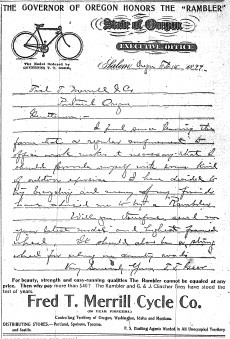 THE GOVERNOR OF OREGON HONORS THE "RAMBLER"
State of Oregon
EXECUTIVE OFFICE
The Model Ordered by
GOVERNOR T. T. GEER.
Salem, Oregon Feb 15, 1899
Fred T. Merrill & Co
Portland Oregon
Gentlemen:—
I find since leaving the
farm that a regular confinement to
office work makes it necessary that I
should provide myself with some kind
of outdoor exercise. I have decided to
try bicycling and many of my friends
have advised me to buy a Rambler.
Will you therefore send me
your latest model and highest framed
wheel. It should also be a strong
wheel for use on country roads.
Very Sincerely Yours, T. T. Geer
For beauty, strength and easy-running qualities The Rambler cannot be equaled at any
price. Then why pay more than $40? The Rambler and G. & J. Clincher tires have stood the
test of years.
Fred T. Merrill Cycle Co.
Controlling Territory of Oregon, Washington, Idaho and Montana.
DISTRIBUTING STORES.—Portland, Spokane, Tacoma
and Seattle.
P. S. Hustling Agents Wanted in All Unoccupied Territory